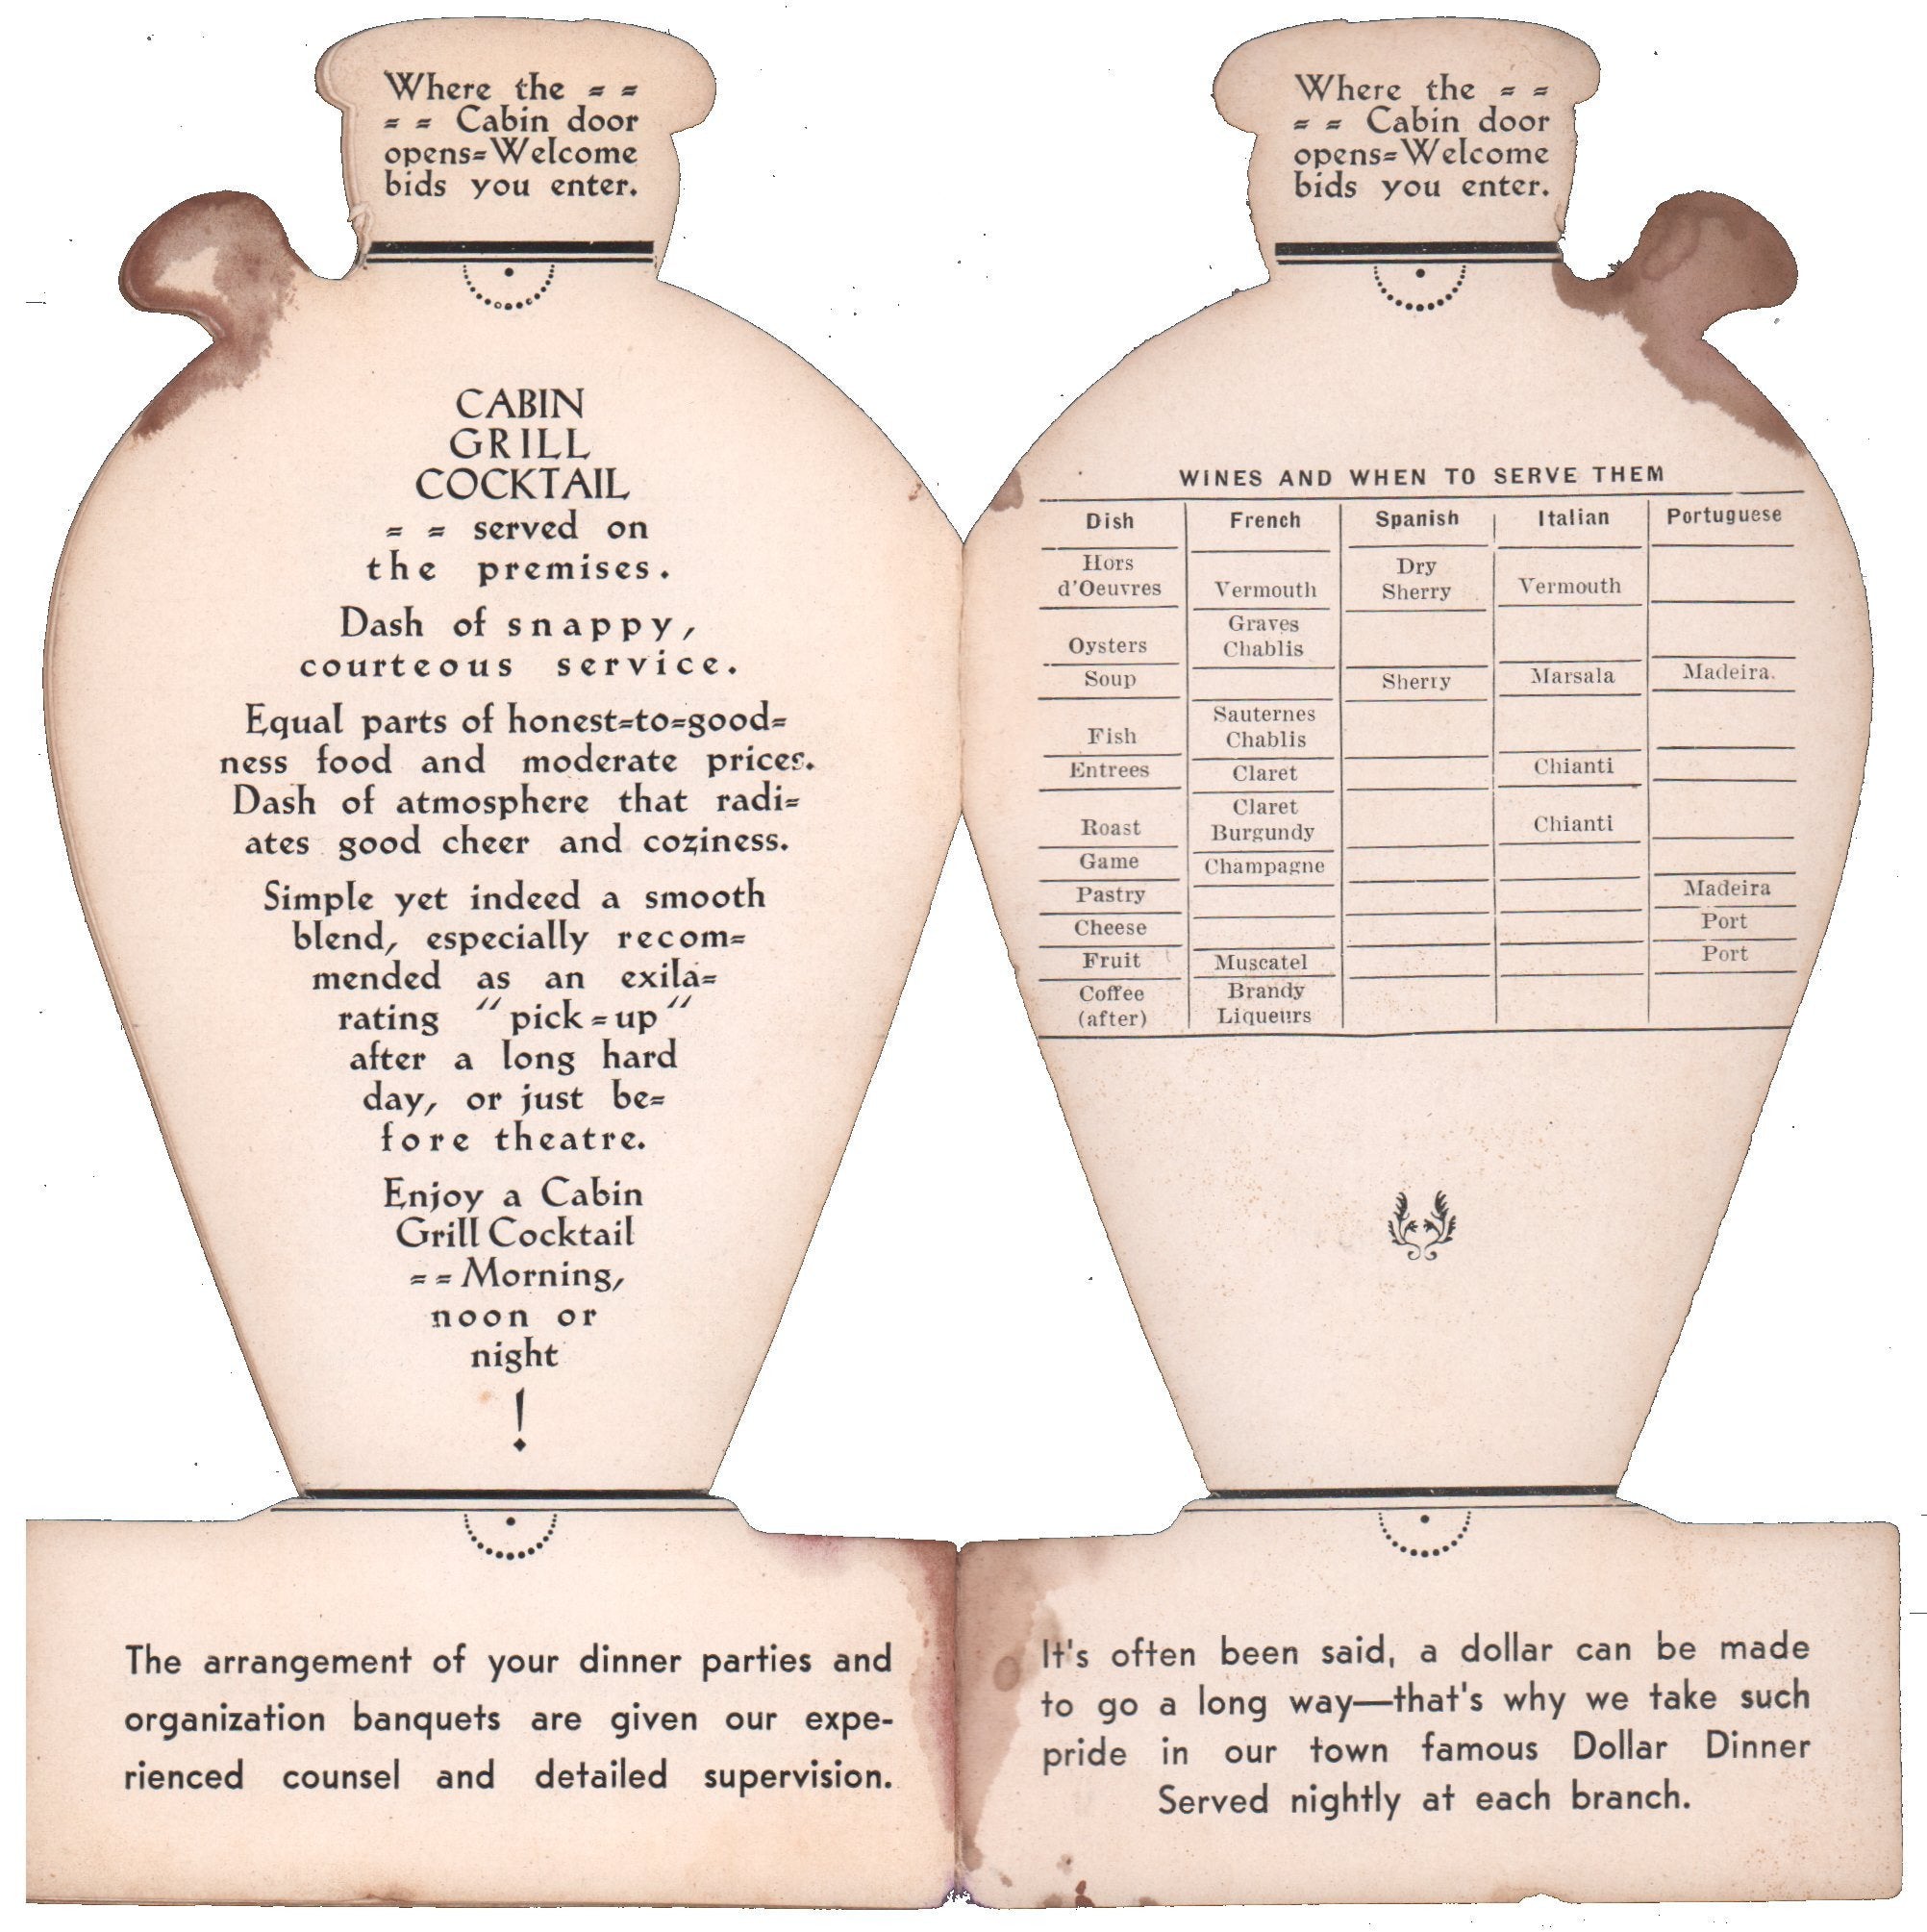 Where the = =
= = Cabin door
opens=Welcome
bids you enter.
CABIN
GRILL
COCKTAIL
= = served on
the premises.
Dash of snappy,
courteous service.
Equal parts of honest=to=good=
ness food and moderate prices.
Dash of atmosphere that radi=
ates good cheer and coziness.
Simple yet indeed a smooth
blend, especially recom=
mended as an exila=
rating "pick=up"
after a long hard
day, or just be=
fore theatre.
Enjoy a Cabin
Grill Cocktail
= = Morning,
noon or
night
!
The arrangement of your dinner parties and
organization banquets are given our expe-
rienced counsel and detailed supervision.
Where the = =
= = Cabin door
opens=Welcome
bids you enter.
WINES AND WHEN TO SERVE THEM
Dish French Spanish Italian Portuguese
Hors Dry
d'Oeuvres Vermouth Sherry Vermouth
Graves
Oysters Chablis
Soup Sherry Marsala Madeira.
Sauternes
Fish Chablis
Entrees Claret Chianti
Claret
Roast Burgundy Chianti
Game Champagne
Pastry Madeira
Cheese Port
Fruit Muscatel Port
Coffee Brandy
(after) Liqueurs
It's often been said, a dollar can be made
to go a long way—that's why we take such
pride in our town famous Dollar Dinner
Served nightly at each branch.